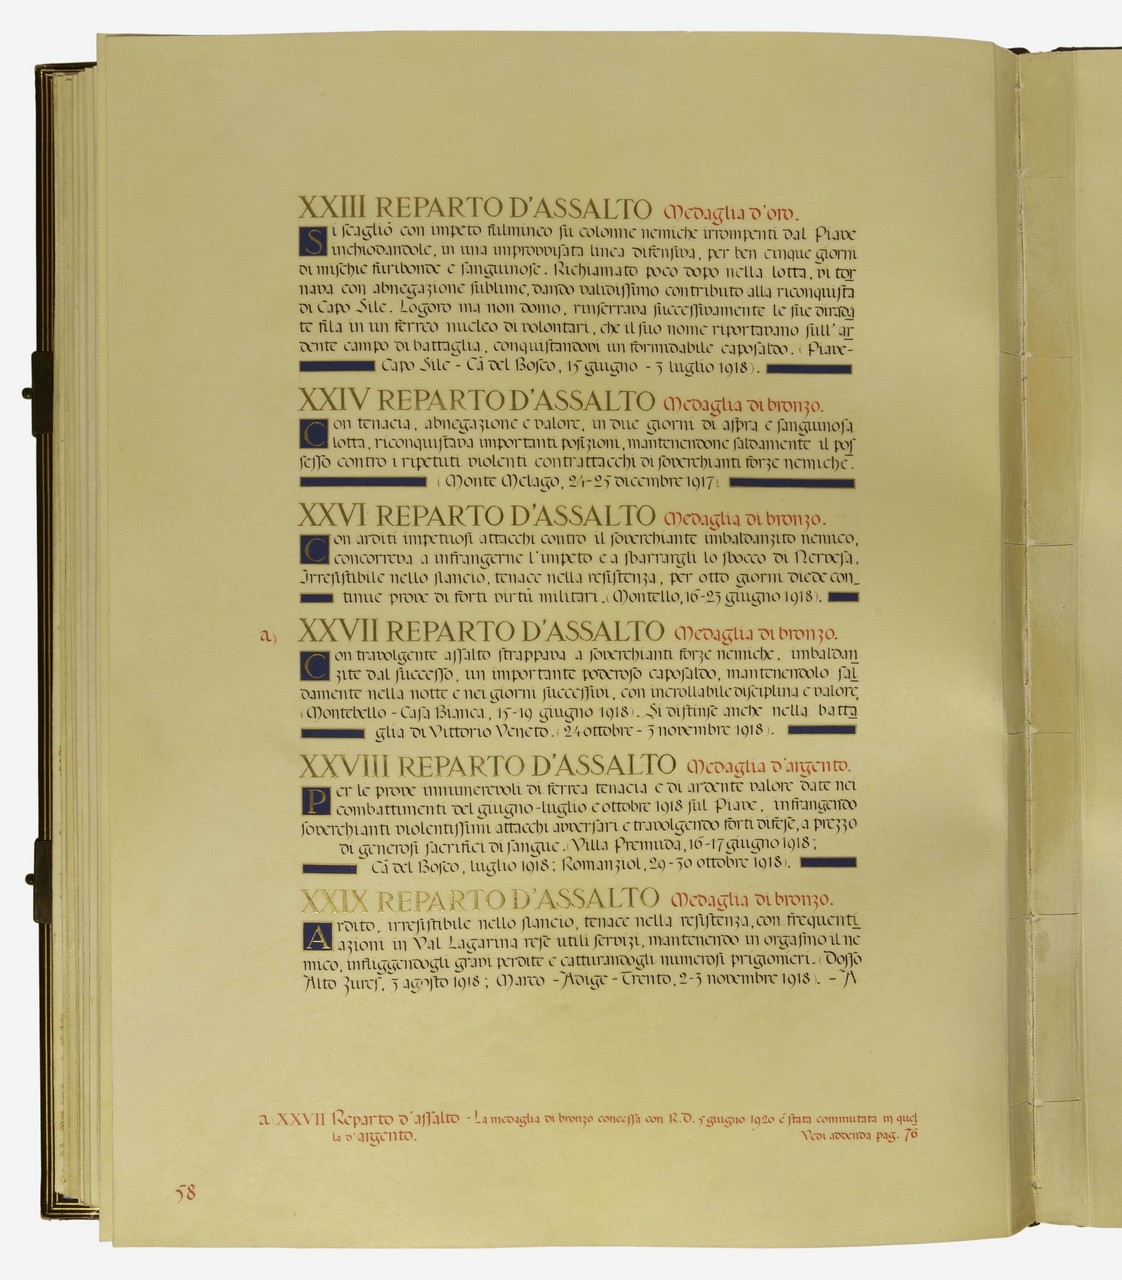 XXIII REPARTO D'ASSALTO Medaglia d'oro.
Si scagliò con impeto fulmineo su colonne nemiche irrompenti dal Piave
inchiodandole, in una improvvisata linea difensiva, per ben cinque giorni
di mischie furibonde e sanguinose. Richiamato poco dopo nella lotta, vi tor
nava con abnegazione sublime, dando validissimo contributo alla riconquista
di Capo Sile. Logoro ma non domo, rinserrava successivamente le sue dirada
te fila in un ferreo nucleo di volontari, che il suo nome riportavano sull'ar
dente campo di battaglia, conquistandovi un formidabile caposaldo. (Piave-
Capo Sile - Cà del Bosco, 15 giugno - 3 luglio 1918).
XXIV REPARTO D'ASSALTO Medaglia di bronzo.
Con tenacia, abnegazione e valore, in due giorni di aspra e sanguinosa
lotta, riconquistava importanti posizioni, mantenendone saldamente il pos
sesso contro i ripetuti violenti contrattacchi di soverchianti forze nemiche.
(Monte Melago, 24-25 dicembre 1917).
XXVI REPARTO D'ASSALTO Medaglia di bronzo.
Con arditi impetuosi attacchi contro il soverchiante imbaldanzito nemico,
concorreva a infrangerne l'impeto e a sbarrargli lo sbocco di Nervesa,
Irresistibile nello slancio, tenace nella resistenza, per otto giorni diede con_
tinue prove di forti virtù militari. (Montello, 16-23 giugno 1918).
a) XXVII REPARTO D'ASSALTO Medaglia di bronzo.
Con travolgente assalto strappava a soverchianti forze nemiche, imbaldan
zite dal successo, un importante poderoso caposaldo, mantenendolo sal
damente nella notte e nei giorni successivi, con incrollabile disciplina e valore,
(Montebello - Casa Bianca, 15-19 giugno 1918). Si distinse anche nella batta
glia di Vittorio Veneto. (24 ottobre - 3 novembre 1918).
XXVIII REPARTO D'ASSALTO Medaglia d'argento.
Per le prove innumerevoli di ferrea tenacia e di ardente valore date nei
combattimenti del giugno-luglio e ottobre 1918 sul Piave, infrangendo
soverchianti violentissimi attacchi avversari e travolgendo forti difese, a prezzo
di generosi sacrifici di sangue. (Villa Premuda, 16-17 giugno 1918;
Cà del Bosco, luglio 1918; Romanziol, 29-30 ottobre 1918).
XXIX REPARTO D'ASSALTO Medaglia di bronzo.
Ardito, irresistibile nello slancio, tenace nella resistenza, con frequenti
azioni in Val Lagarina rese utili servizi, mantenendo in orgasmo il ne
mico, infliggendogli gravi perdite e catturandogli numerosi prigionieri. (Dosso
Alto Zures, 3 agosto 1918; Marco - Adige - Trento, 2-3 novembre 1918). - A
a XXVII Reparto d'assalto - La medaglia di bronzo concessa con R.D. 5 giugno 1920 è stata commutata in quel
la d'argento. Vedi addenda pag. 76
58